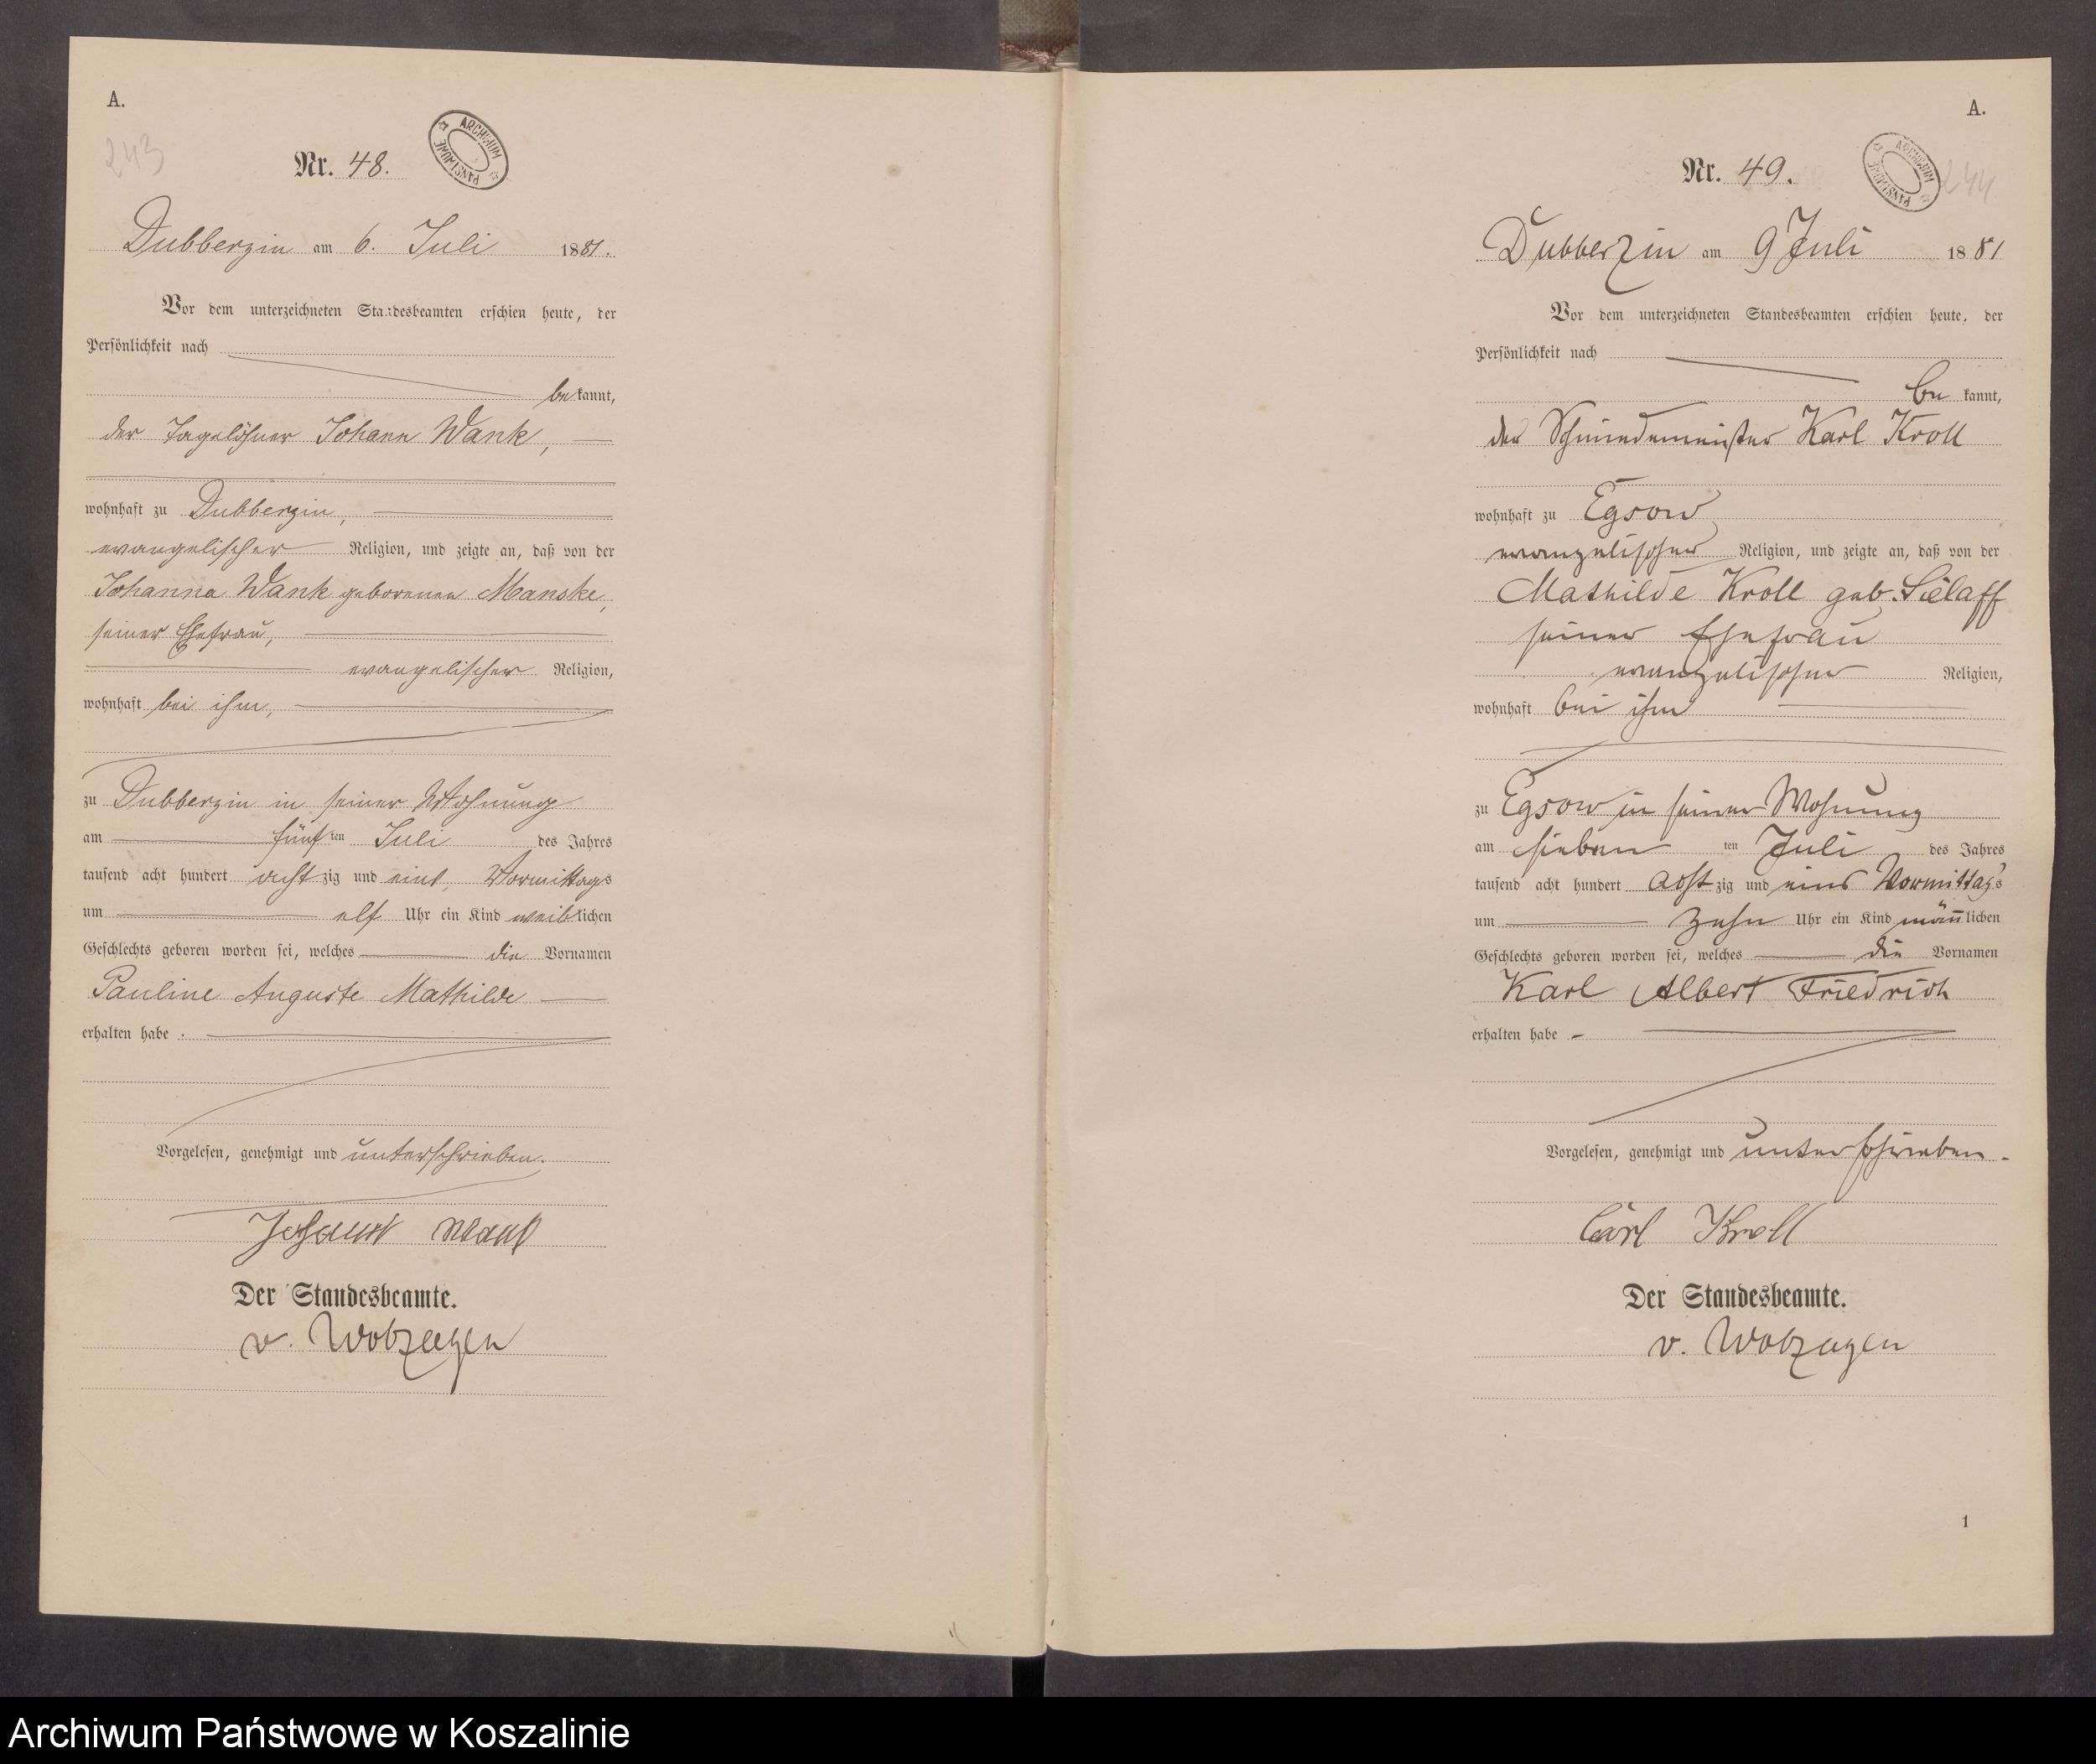 A.
243
Nr. 48.
ARCHIWUM PAŃSTWOWE
Dubberzin am 6. Juli 1881.
Vor dem unterzeichneten Standesbeamten erschien heute, der
Persönlichkeit nach
bekannt,
der Tagelöhner Johann Wank,
wohnhaft zu Dubberzin,
evangelischer Religion, und zeigte an, daß von der
Johanna Wank geborenen Manske,
seiner Ehefrau,
evangelischer Religion,
wohnhaft bei ihm,
zu Dubberzin in seiner Wohnung
am fünften Juli des Jahres
tausend acht hundert achtzig und eins, Vormittags
um elf Uhr ein Kind weiblichen
Geschlechts geboren worden sei, welches die Vornamen
Pauline Auguste Mathilde
erhalten habe.
Vorgelesen, genehmigt und unterschrieben.
Johann Wank
Der Standesbeamte.
v. Wobzagen
A.
244
Nr. 49.
ARCHIWUM PAŃSTWOWE
Dubberzin am 9 Juli 1881
Vor dem unterzeichneten Standesbeamten erschien heute, der
Persönlichkeit nach
bekannt,
der Schmiedemeister Karl Kroll
wohnhaft zu Egsow
evangelischer Religion, und zeigte an, daß von der
Mathilde Kroll geb. Sielaff
seiner Ehefrau
evangelischer Religion,
wohnhaft bei ihm
zu Egsow in seiner Wohnung
am siebenten Juli des Jahres
tausend acht hundert achtzig und eins Vormittags
um zehn Uhr ein Kind männlichen
Geschlechts geboren worden sei, welches die Vornamen
Karl Albert Friedrich
erhalten habe -
Vorgelesen, genehmigt und unterschrieben.
Carl Kroll
Der Standesbeamte.
v. Wobzagen
1
Archiwum Państwowe w Koszalinie